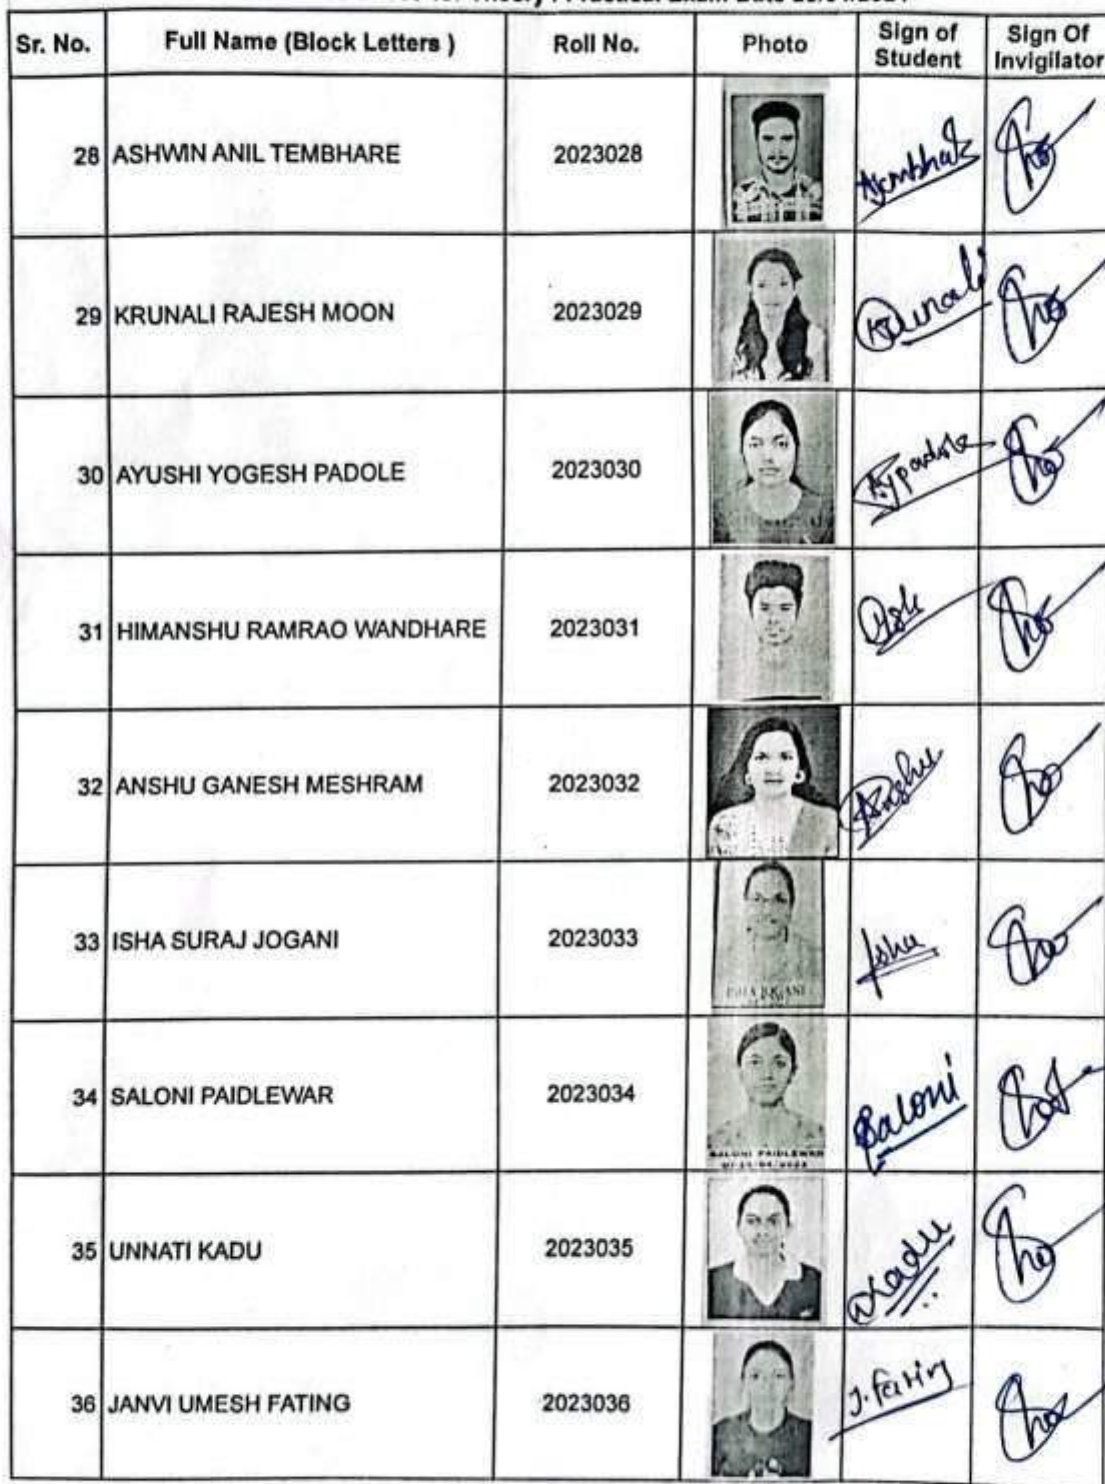 Theory / Practical Exam Date
Sr. No. Full Name (Block Letters ) Roll No. Photo Sign of Student Sign Of Invigilator
28 ASHWIN ANIL TEMBHARE 2023028
29 KRUNALI RAJESH MOON 2023029 Krunali
30 AYUSHI YOGESH PADOLE 2023030 Aypadole
31 HIMANSHU RAMRAO WANDHARE 2023031
32 ANSHU GANESH MESHRAM 2023032 Anshu
33 ISHA SURAJ JOGANI 2023033 Isha
34 SALONI PAIDLEWAR 2023034 Saloni
SALONI PAIDLEWAR
35 UNNATI KADU 2023035
36 JANVI UMESH FATING 2023036 J.Fating